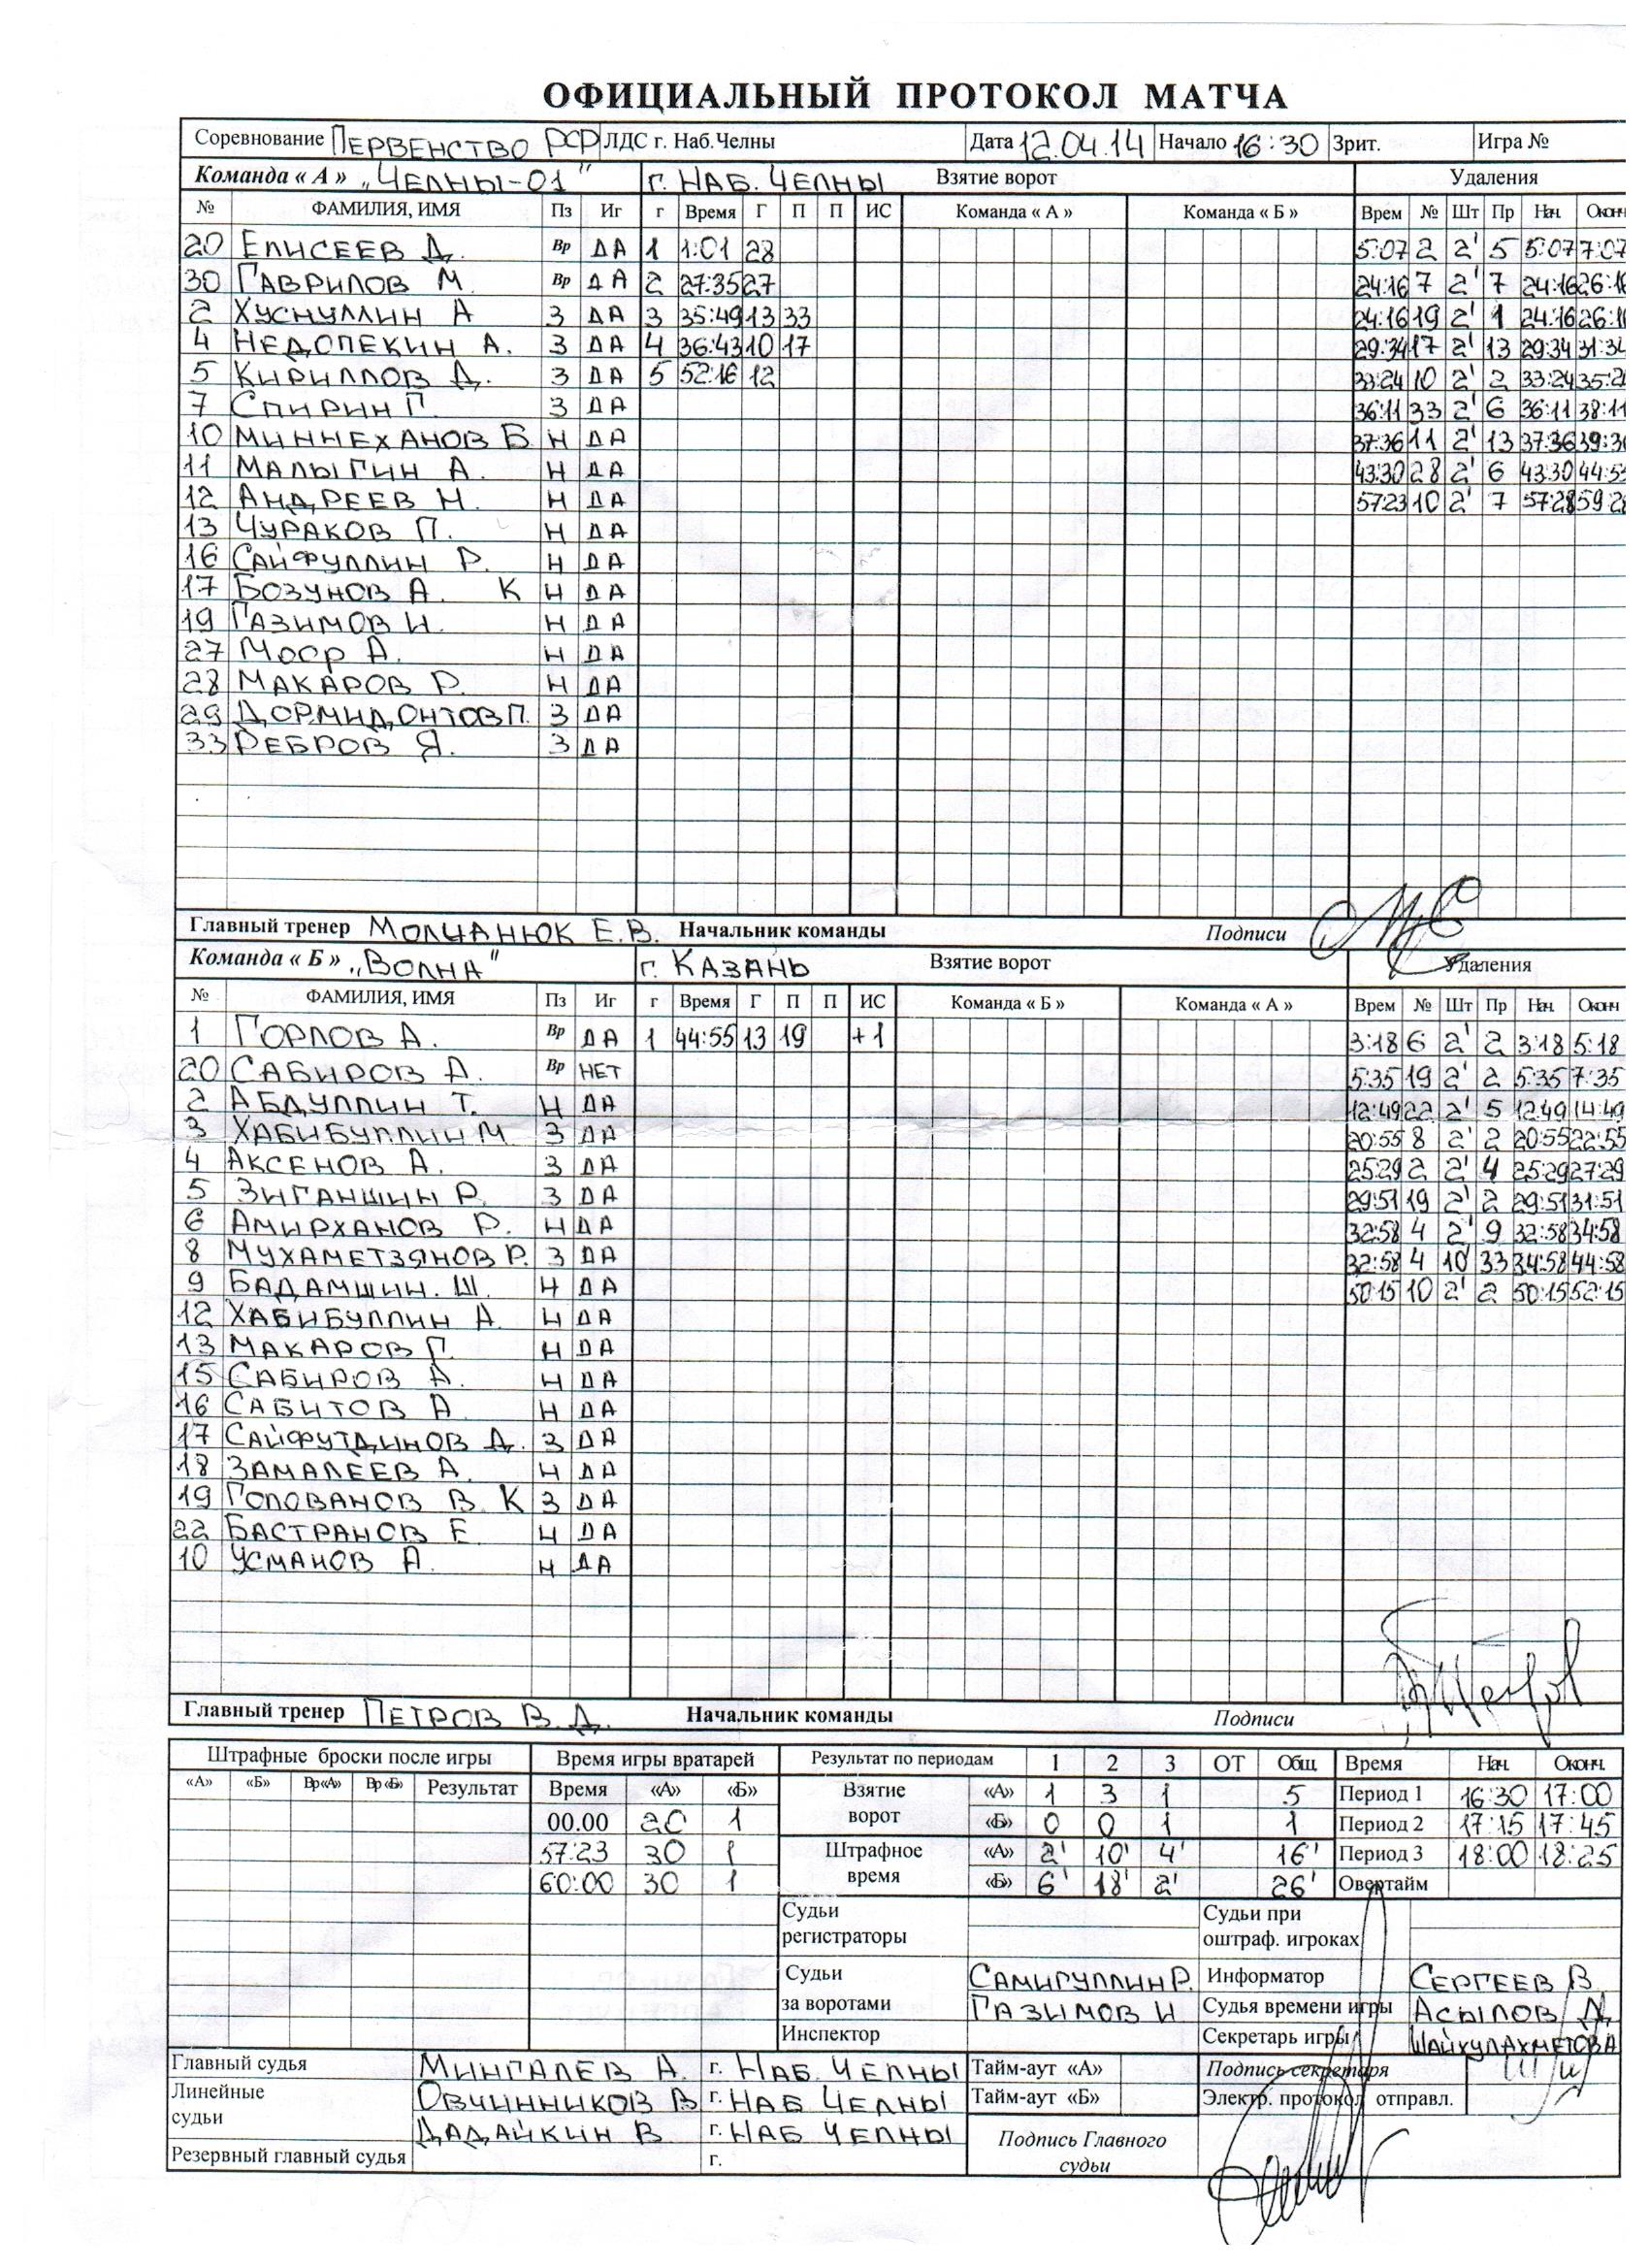 ОФИЦИАЛЬНЫЙ ПРОТОКОЛ МАТЧА
Соревнование ПЕРВЕНСТВО РСР ЛДС г. Наб.Челны Дата 12.04.14 Начало 16:30 Зрит. Игра №
Команда « А » „ЧЕЛНЫ-01" г. НАБ. ЧЕЛНЫ Взятие ворот Удаления
№ ФАМИЛИЯ, ИМЯ Пз Иг г Время Г П П ИС Команда « А » Команда « Б » Врем № Шт Пр Нач. Оконч
20 ЕЛИСЕЕВ Д. Вр ДА 1 1:01 28 5:07 2 2' 5 5:07 7:07
30 ГАВРИЛОВ М. Вр ДА 2 27:35 27 24:16 7 2' 7 24:16 26:16
2 ХУСНУЛЛИН А З ДА 3 35:49 13 33 24:16 19 2' 1 24:16 26:16
4 НЕДОПЕКИН А. З ДА 4 36:43 10 17 29:34 17 2' 13 29:34 31:34
5 КИРИЛЛОВ Д. З ДА 5 52:16 12 33:24 10 2' 2 33:24 35:24
7 СПИРИН Г. З ДА 36:11 33 2' 6 36:11 38:11
10 МИННЕХАНОВ Б Н ДА 37:36 11 2' 13 37:36 39:36
11 МАЛЫГИН А. Н ДА 43:30 28 2' 6 43:30 44:55
12 АНДРЕЕВ Н. Н ДА 57:23 10 2' 7 57:28 59:28
13 ЧУРАКОВ П. Н ДА
16 САЙФУЛЛИН Р. Н ДА
17 БОЗУНОВ А. К Н ДА
19 ГАЗИМОВ И. Н ДА
27 МОСР А. Н ДА
28 МАКАРОВ Р. Н ДА
29 ДОРМИДОНТОВ П. З ДА
33 РЕБРОВ Я. З ДА
Главный тренер МОЛЧАНЮК Е.В. Начальник команды Подписи
Команда « Б » „ВОЛНА" г. КАЗАНЬ Взятие ворот Удаления
№ ФАМИЛИЯ, ИМЯ Пз Иг г Время Г П П ИС Команда « Б » Команда « А » Врем № Шт Пр Нач. Оконч
1 ГОРЛОВ А. Вр ДА 1 44:55 13 19 +1 3:18 6 2' 2 3:18 5:18
20 САБИРОВ А. Вр НЕТ 5:35 19 2' 2 5:35 7:35
2 АБДУЛЛИН Т. Н ДА 12:49 22 2' 5 12:49 14:49
3 ХАБИБУЛЛИН М З ДА 20:55 8 2' 2 20:55 22:55
4 АКСЕНОВ А. З ДА 25:29 2 2' 4 25:29 27:29
5 ЗИГАНШИН Р. З ДА 29:51 19 2' 2 29:51 31:51
6 АМИРХАНОВ Р. Н ДА 32:58 4 2' 9 32:58 34:58
8 МУХАМЕТЗЯНОВ Р. З ДА 32:58 4 10' 33 34:58 44:58
9 БАДАМШИН. Ш. Н ДА 50:15 10 2' 2 50:15 52:15
12 ХАБИБУЛЛИН А. Н ДА
13 МАКАРОВ Г. Н ДА
15 САБИРОВ А. Н ДА
16 САБИТОВ А. Н ДА
17 САЙФУТДИНОВ Д. З ДА
18 ЗАМАЛЕЕВ А. Н ДА
19 ГОЛОВАНОВ В. К З ДА
22 БАСТРАКОВ Е. Н ДА
10 УСМАНОВ А. Н ДА
Главный тренер ПЕТРОВ В.Д. Начальник команды Подписи
Штрафные броски после игры Время игры вратарей Результат по периодам 1 2 3 ОТ Общ. Время Нач. Оконч.
«А» «Б» Вр«А» Вр«Б» Результат Время «А» «Б» Взятие ворот «А» 1 3 1 5 Период 1 16:30 17:00
00.00 20 1 «Б» 0 0 1 1 Период 2 17:15 17:45
57:23 30 1 Штрафное время «А» 2' 10' 4' 16' Период 3 18:00 18:25
60:00 30 1 «Б» 6' 18' 2' 26' Овертайм
Судьи регистраторы Судьи при оштраф. игроках
Судьи за воротами САМИГУЛЛИН Р. Информатор СЕРГЕЕВ В.
ГАЗИМОВ И Судья времени игры АСЫЛОВ Д.
Инспектор Секретарь игры ШАЙХУЛАХМЕТОВА
Главный судья МИНГАЛЕВ А. г. НАБ. ЧЕЛНЫ Тайм-аут «А» Подпись секретаря
Линейные судьи ОВЧИННИКОВ В г. НАБ ЧЕЛНЫ Тайм-аут «Б» Электр. протокол отправл.
ДАДАЙКИН В г. НАБ ЧЕЛНЫ Подпись Главного судьи
Резервный главный судья г.